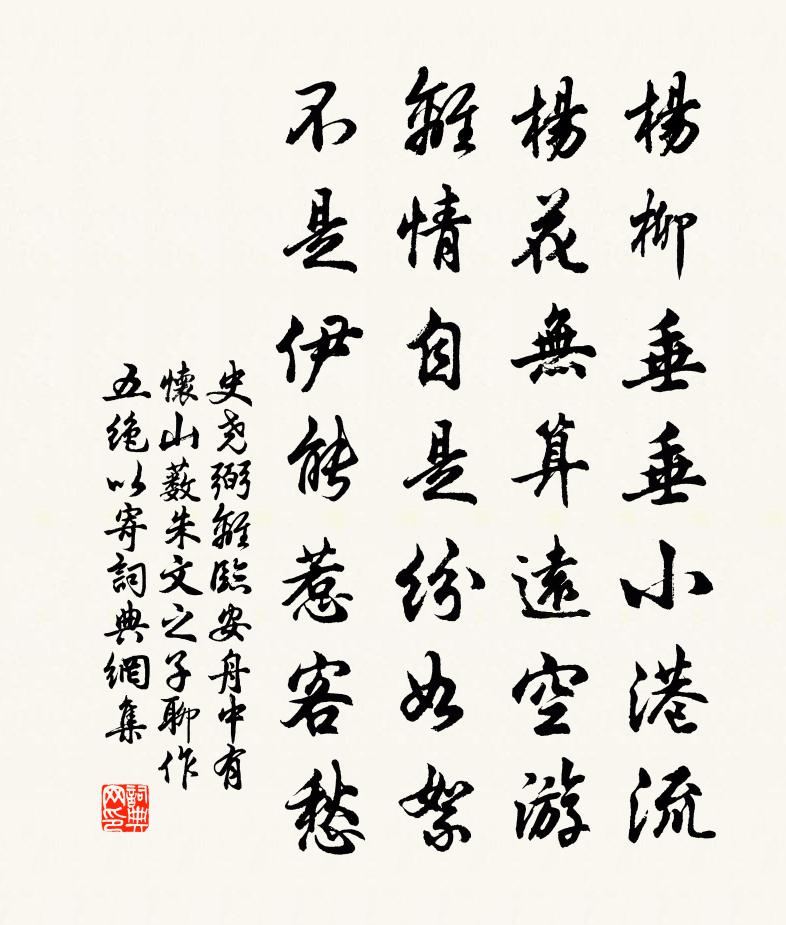 楊柳垂垂小港流
楊花無算遠空游
離情自是紛如絮
不是伊能惹客愁
史尧弼離臨安舟中有
懷山薮朱文之子聊作
五絶以寄詞典網集
詞典网印